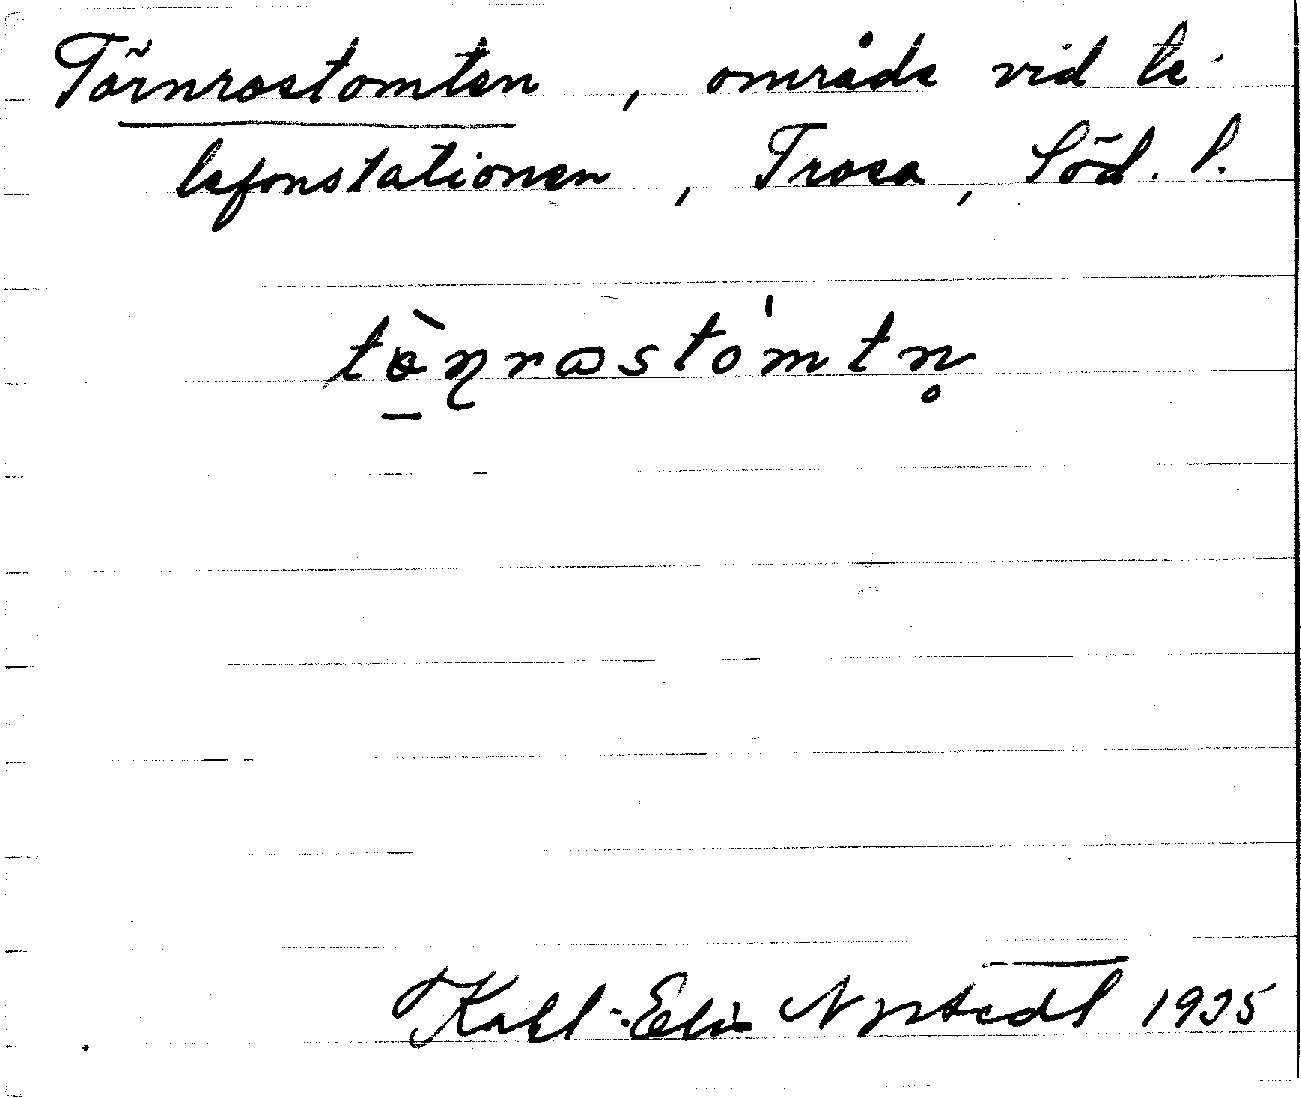 Törnrostomten, område vid te-
lefonstationen, Trosa, Söd. l.
tö̀ṇrωstómtn̥
Nystedt 1935